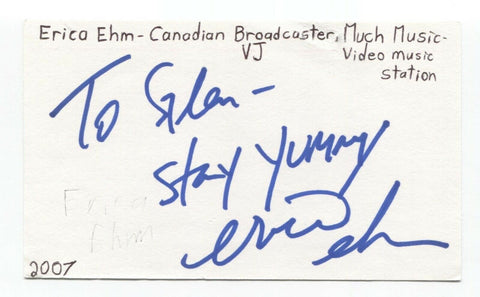 Erica Ehm - Canadian Broadcaster, Much Music-
VJ
Video music
station
To Glen -
Stay Yummy
Erica
Ehm
erica ehm
2007